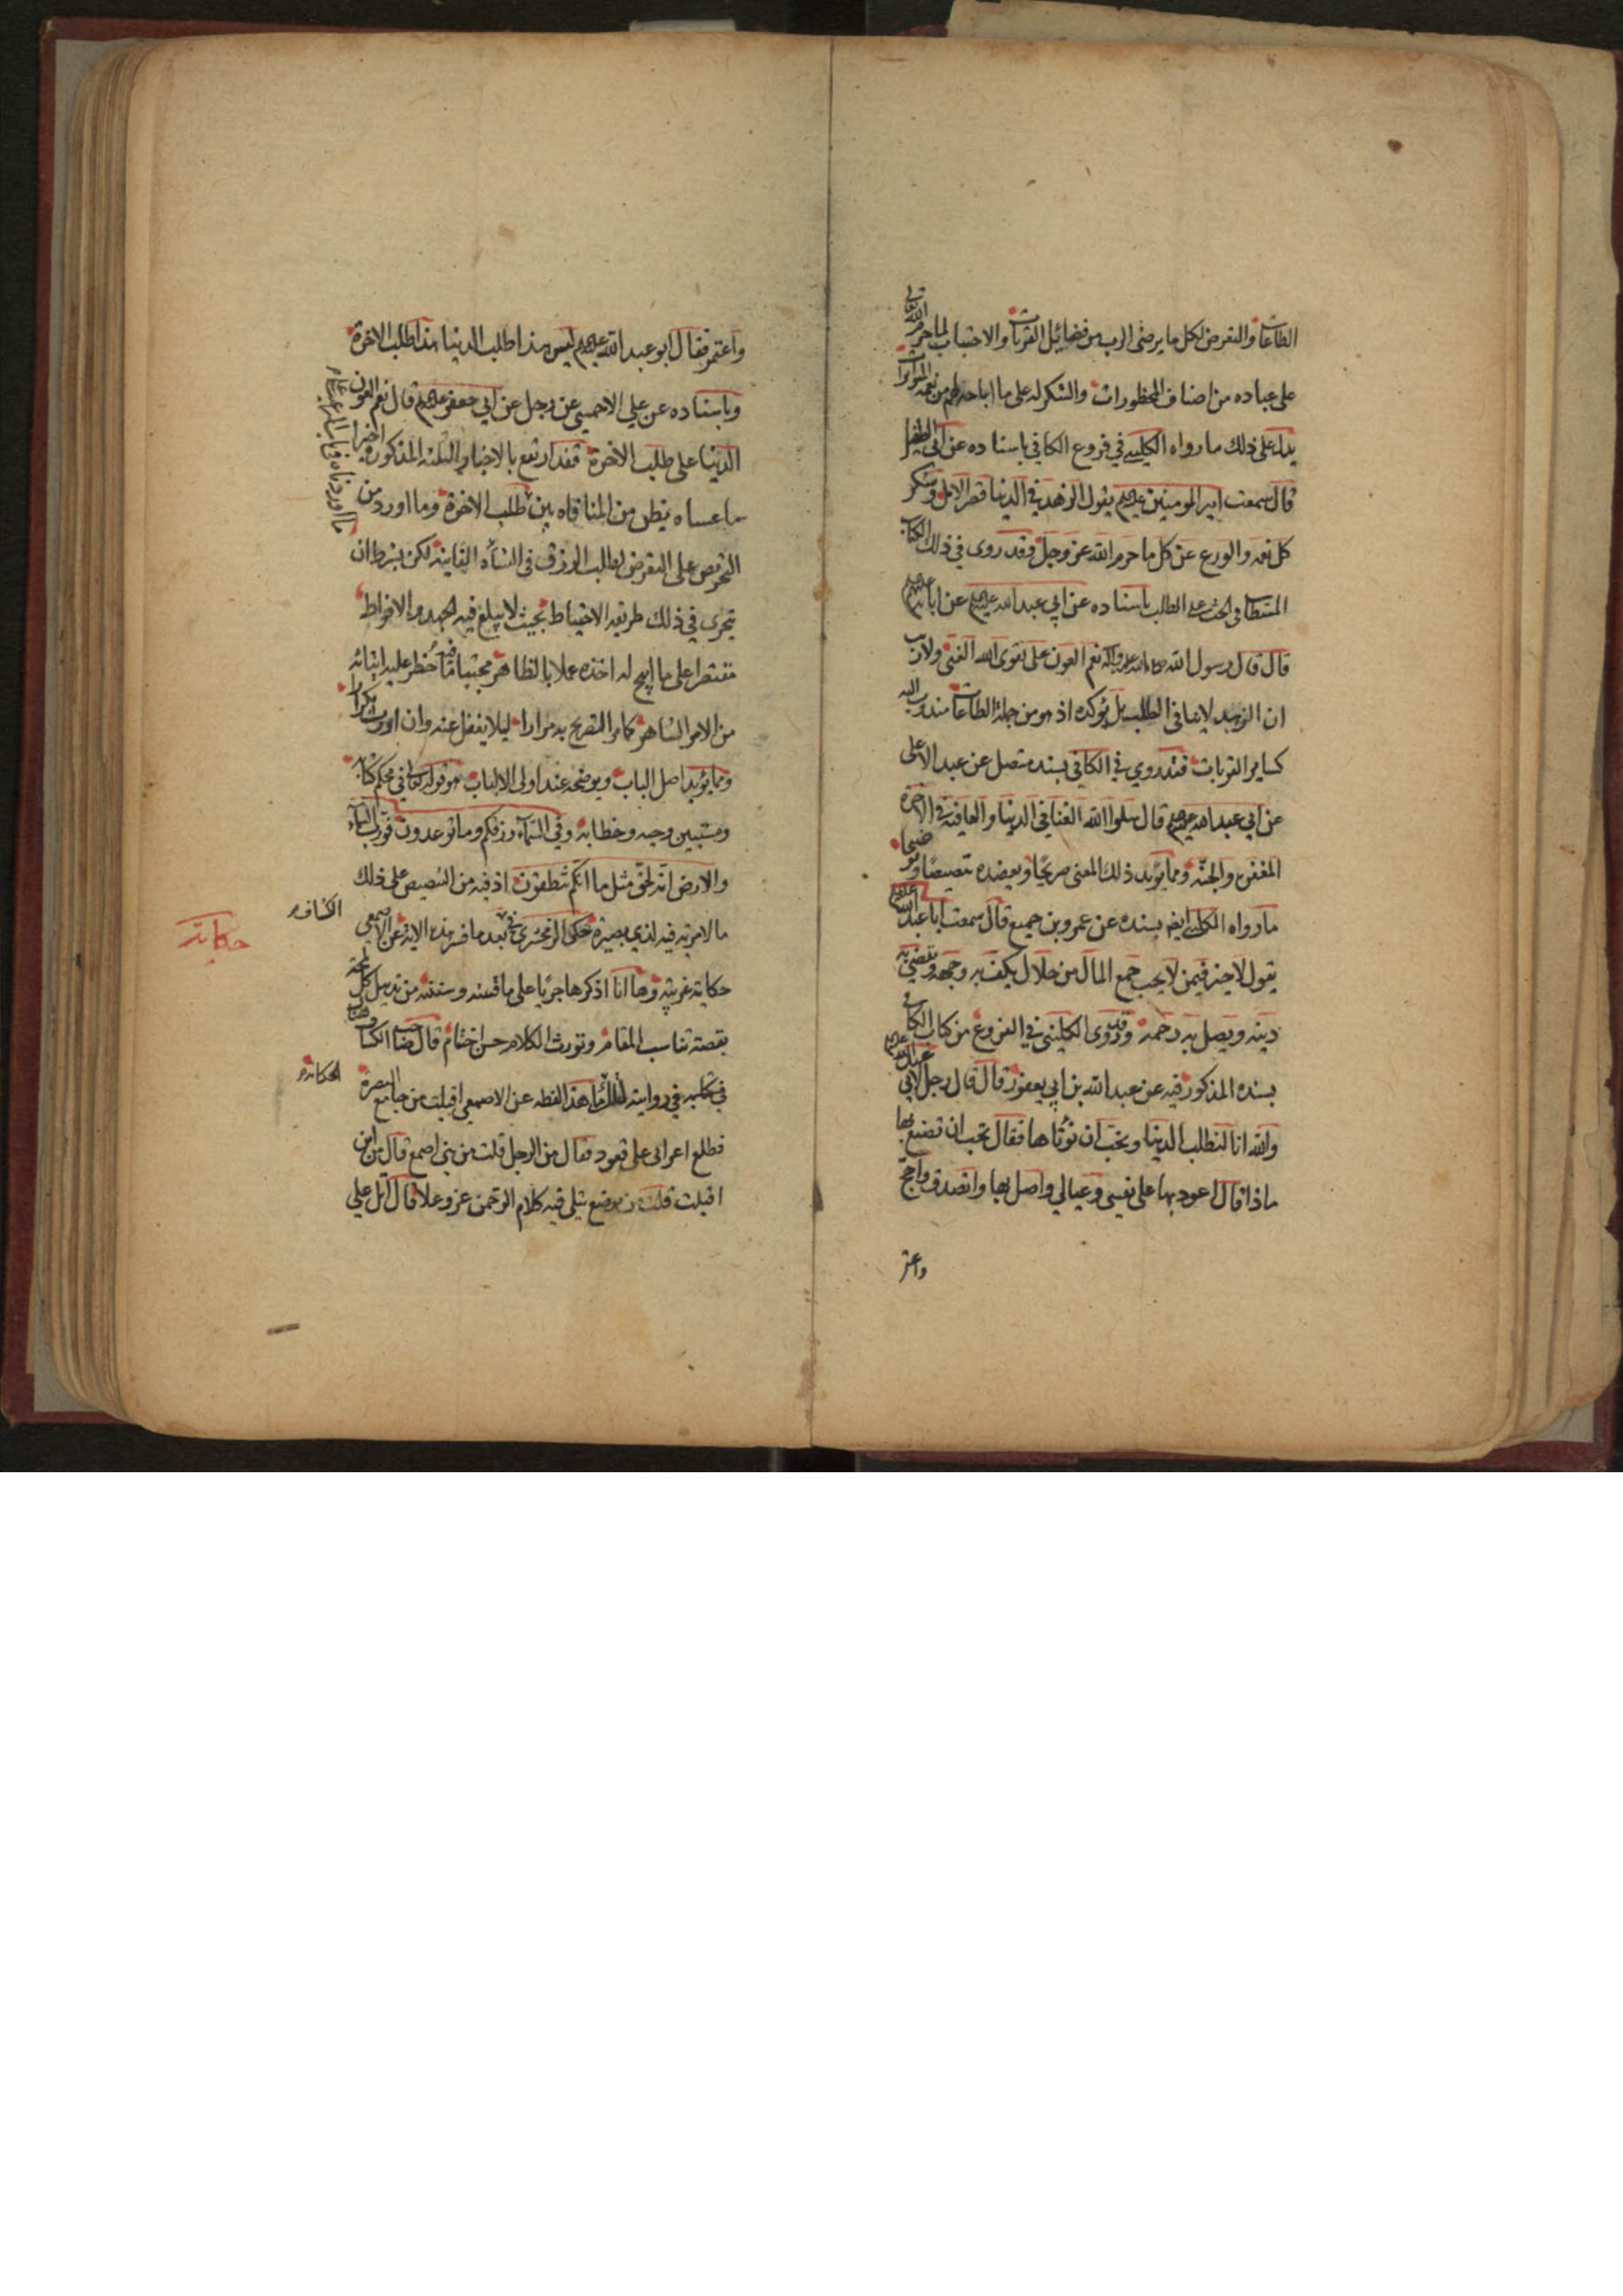 الطاعات والتعرض لكل ما يرضى الرب من فضائل القربات والاجتناب لما حرم الله تعالى
على عباده من اصناف المحظورات والشكر له على ما اباحه لهم من نعمه
يدل على ذلك ما رواه الكليني في فروع الكافي باسناده عن ابى الطفيل
قال سمعت امير المومنين عليه السلم يقول الزهد في الدنيا قصر الامل وشكر
كل نعمه والورع عن كل ما حرم الله عز وجل وقد روى في ذلك الكتاب
المستطاب في الحث على الطلب باسناده عن ابي عبد الله عليه السلم عن ابائه عليهم السلم
قال قال رسول الله صلى الله عليه واله نعم العون على تقوى الله الغنى ولا ريب
ان الزهد لا ينافى الطلب بل يؤكده اذ هو من جملة الطاعات مندوب اليه
كساير القربات فقد روي في الكافي بسند متصل عن عبد الاعلى
عن ابي عبد الله عليه السلم قال سلوا الله الغنا في الدنيا والعافية وفي الاخرة
المغفرة والجنة ومما يؤيد ذلك المعنى صريحا ويعضده تنصيصا وتوضيحا
ما رواه الكليني ايضا بسنده عن عمرو بن جميع قال سمعت ابا عبد الله عليه السلم
يقول لا خير فيمن لا يحب جمع المال من حلال يكف به وجهه ويقضي به
دينه ويصل به رحمه وقد روى الكليني في الفروع من كتاب الكافي
بسنده المذكور فيه عن عبد الله بن ابي يعفور قال قال رجل لابي عبد الله عليه السلم
والله انا لنطلب الدنيا ونحب ان نؤتاها فقال تحب ان تصنع بها
ماذا قال اعود بها على نفسي وعيالي واصل بها واتصدق واحج
واعتمر
واعتمر فقال ابو عبد الله عليه السلم ليس هذا طلب الدنيا هذا طلب الاخرة
وباسناده عن علي الاحمسي عن رجل عن ابي جعفر عليه السلم قال نعم العون
الدنيا على طلب الاخرة فقد ارتفع بالاخبار الثلثه المذكورة اخيرا
ما عساه يظن من المنافاه بين طلب الاخرة وما اورد من
التحريص على التعرض لطلب الرزق في النشأه الفانيه لكن بشرط ان
يتحرى في ذلك طريقه الاحتياط بحيث لا يبلغ فيه الجهد والافراط
مقتصرا على ما ابيح له اخذه عملا بالظاهر مجتنبا فيه ما حظر عليه اتيانه
من الامر الظاهر كما مر التصريح به مرارا ليلا يغفل عنه وان اورث تكرارا
ومما يؤيد اصل الباب ويوضحه عند اولى الالباب هو قوله تعالى في محكم كتابه
ومستبين وحيه وخطابه وفي السماء رزقكم وما توعدون فورب السماء
والارض انه لحق مثل ما انكم تنطقون اذ فيه من التنصيص على ذلك
ما لا مرية فيه لذي بصيرة حكى الزمخشري في الكشاف بعد ما فسر هذه الاية عن الاصمعي
حكاية غريبه وها انا اذكرها جريا على ما
بقصة تناسب المقام وتورث الكلام حسن اختتام قال صاحب الكشاف
في روايته هذا لفظه عن الاصمعي اقبلت من جامع البصرة
فطلع اعرابى على قعود فقال من الرجل قلت من بني اصمع قال من اين
اقبلت قلت من موضع يتلى فيه كلام الرحمن عز وعلا قال اتل علي
حكاية